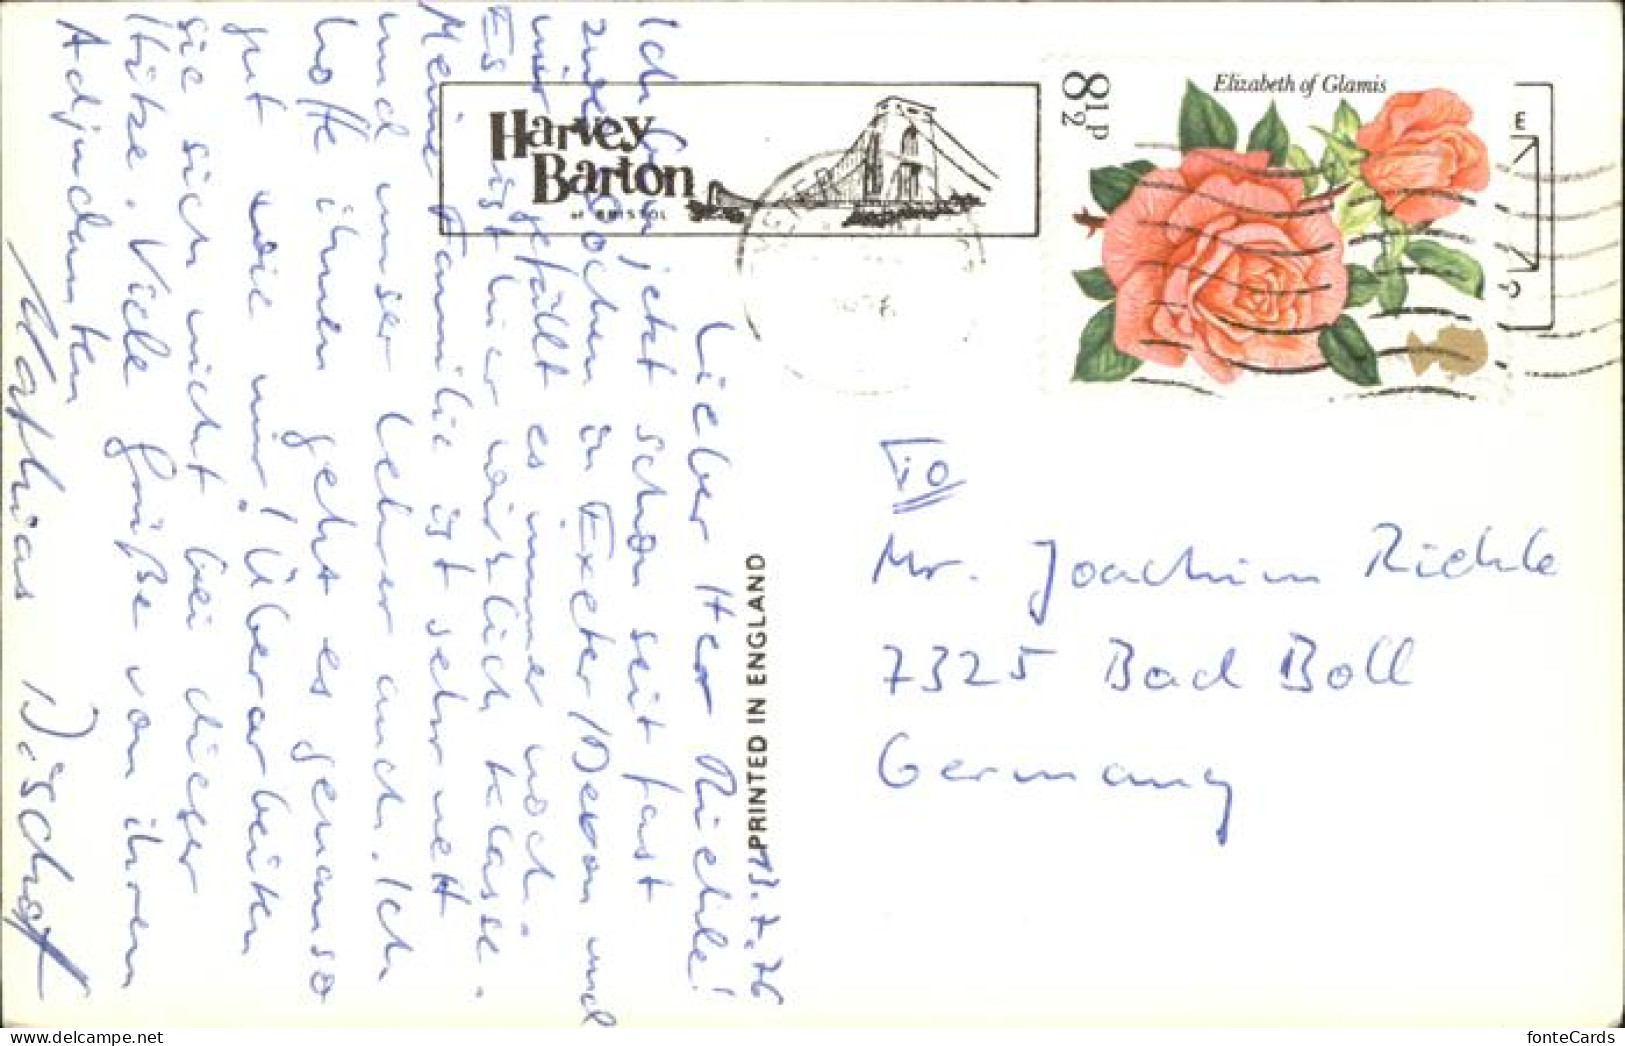 13.7.76
Lieber Herr Riehle!
Ich bin jetzt schon seit fast
zwei Wochen in Exeter/Devon und
mir gefällt es immer noch.
Es ist hier wirklich klasse.
Meine Familie ist sehr nett
und unser Lehrer auch. Ich
hoffe ihnen geht es genauso
gut wie mir! Überarbeiten
sie sich nicht bei dieser
Hitze. Viele Grüße von ihrem
Adjudanten
Mathias Bischof
PRINTED IN ENGLAND
Harvey
Barton
of BRISTOL
8½P
Elizabeth of Glamis
To
Mr. Joachim Riehle
7325 Bad Boll
Germany
fonteCards